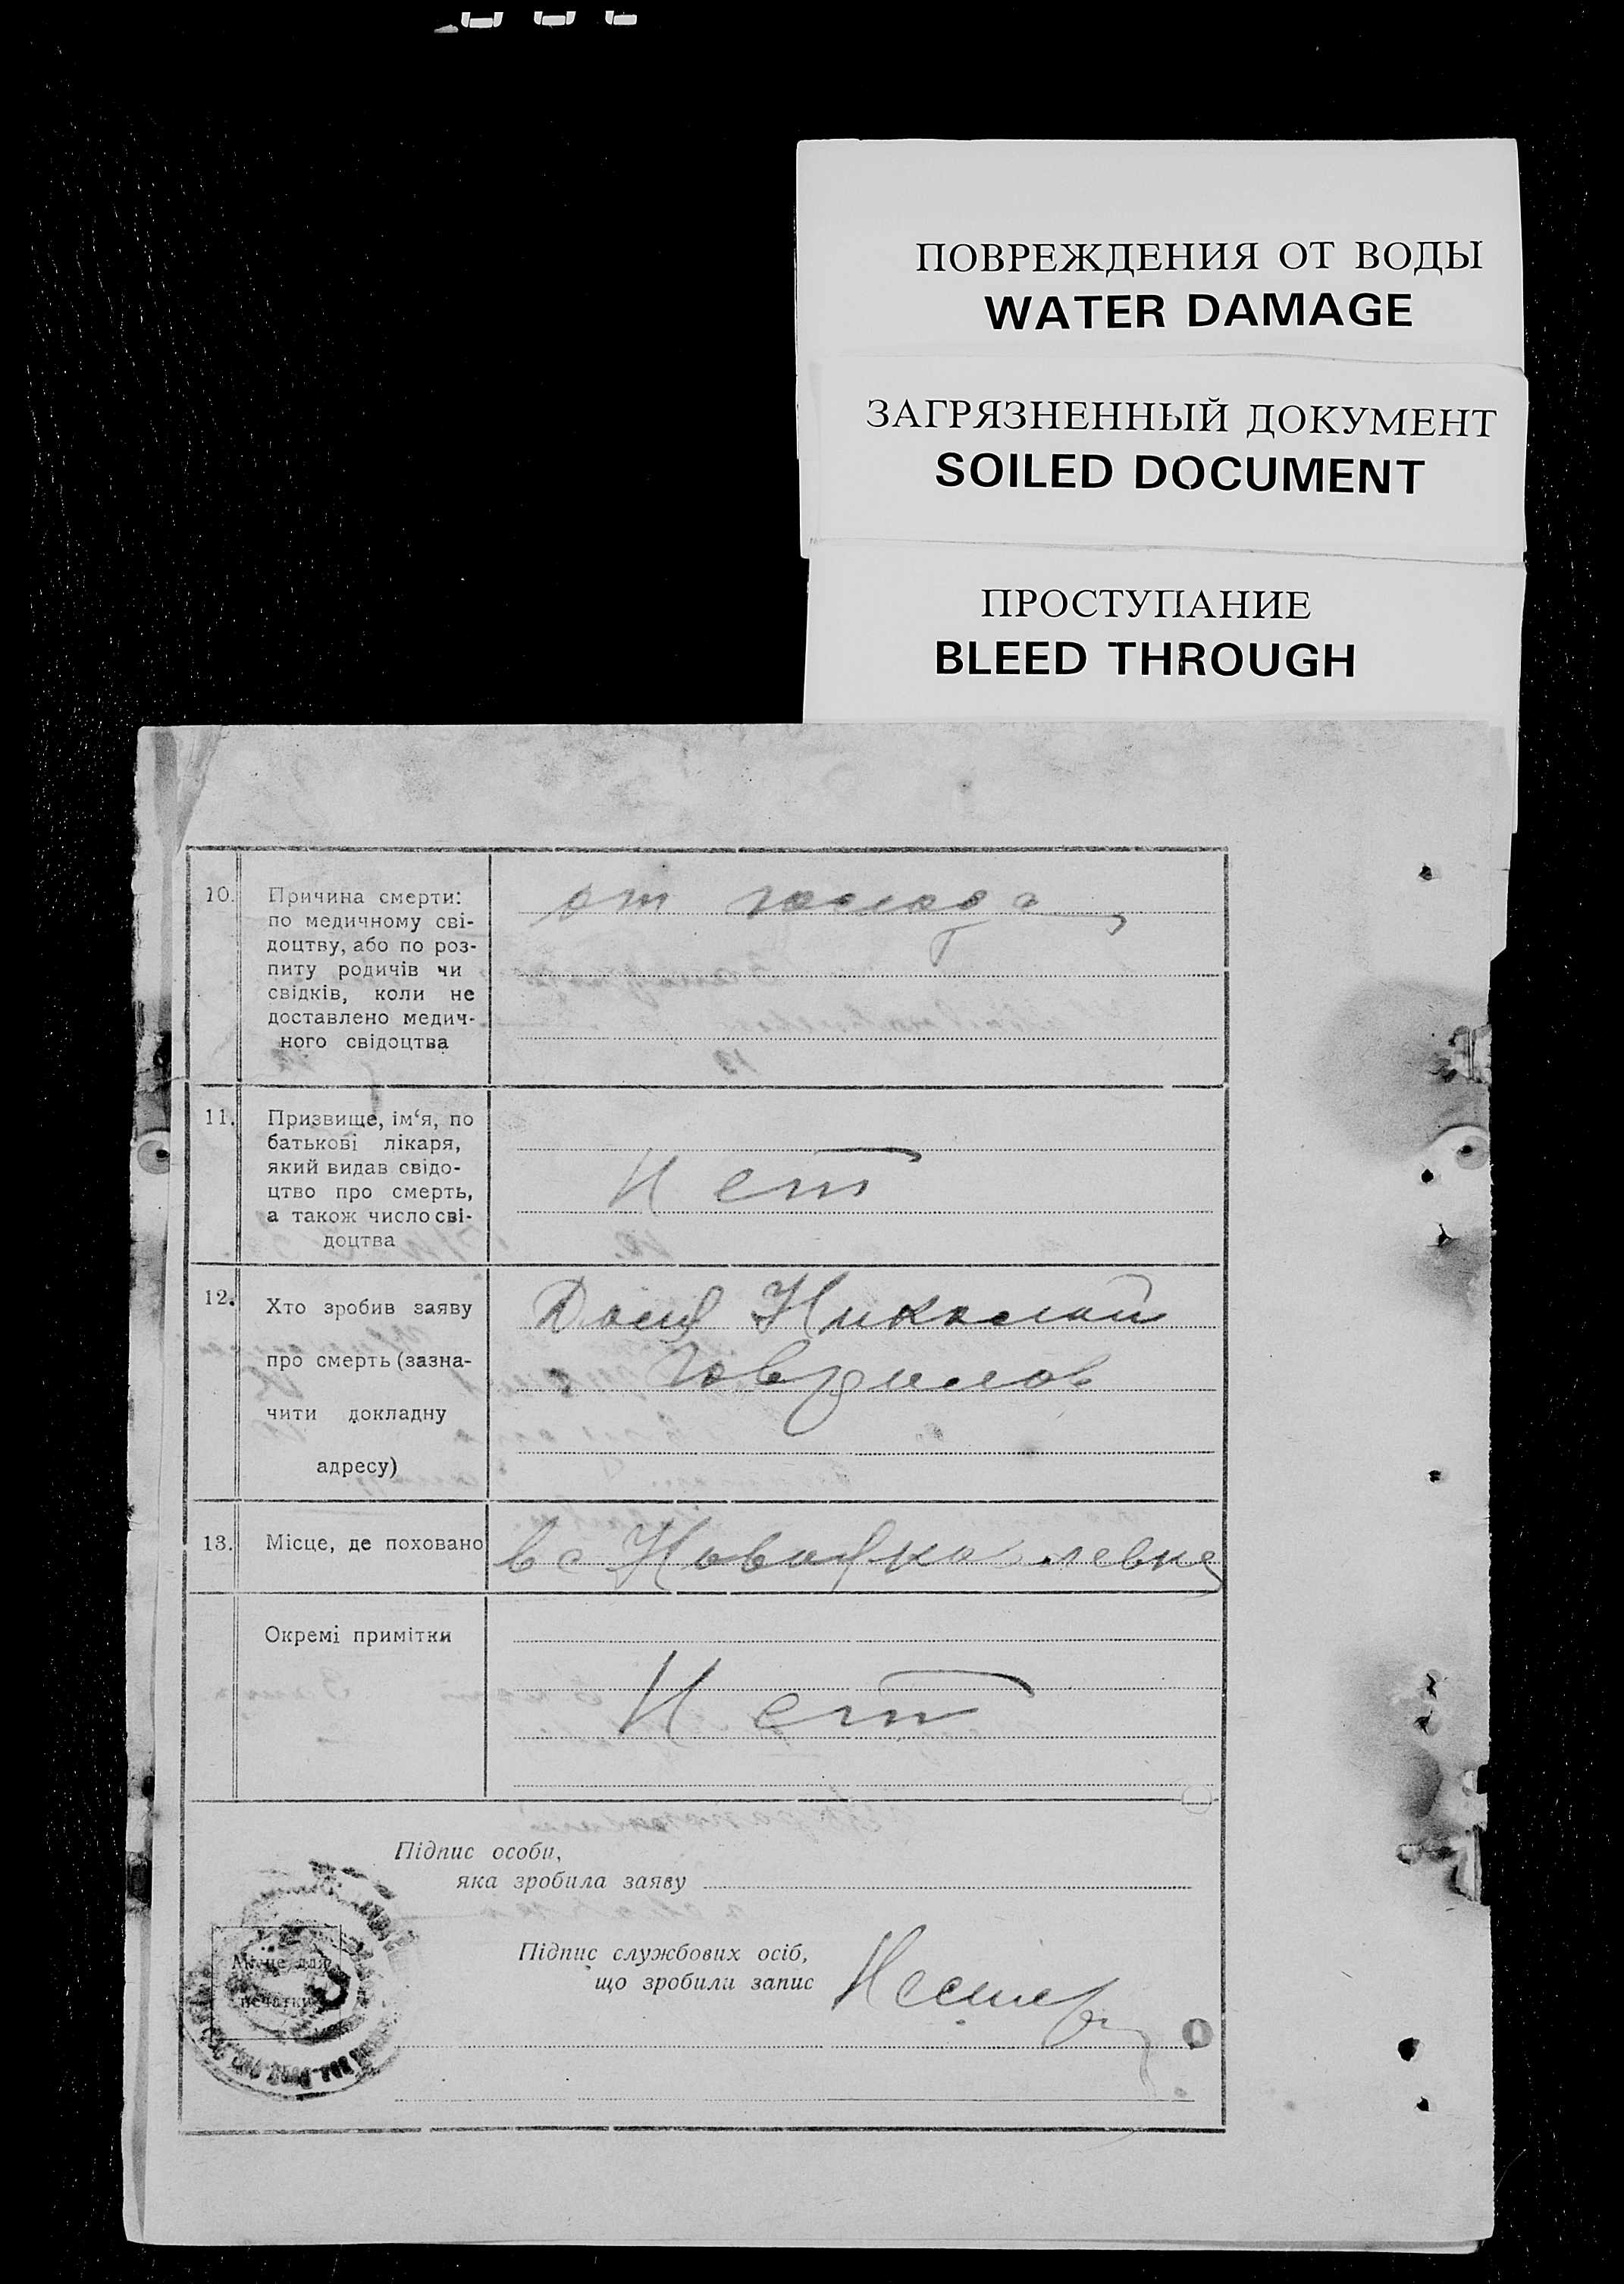 ПОВРЕЖДЕНИЯ ОТ ВОДЫ
WATER DAMAGE
ЗАГРЯЗНЕННЫЙ ДОКУМЕНТ
SOILED DOCUMENT
ПРОСТУПАНИЕ
BLEED THROUGH
10. Причина смерти:
по медичному сві-
доцтву, або по роз-
питу родичів чи
свідків, коли не
доставлено медич-
ного свідоцтва
от голода
11. Призвище, ім‘я, по
батькові лікаря,
який видав свідо-
цтво про смерть,
а також число сві-
доцтва
Нет
12. Хто зробив заяву
про смерть (зазна-
чити докладну
адресу)
Николай
Гаврилов
13. Місце, де поховано
в с
Окремі примітки
Нет
Підпис особи,
яка зробила заяву
Місце для
печатки
Підпис службових осіб,
що зробили запис